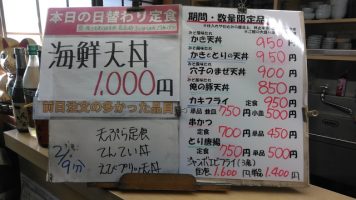 本日の日替わり定食
海鮮天丼
1,000円
前回注文の多かった品目
天ぷら定食
てんてい天丼
えびブリッツ天丼
期間・数量限定品
かき天丼 950円
かきととりの天丼 950円
穴子のまぜ天丼 900円
俺の豚天丼 850円
カキフライ 定食 950円
単品 並皿 750円 小皿 500円
串かつ
定食 700円 単品 450円
とり唐揚
定食 750円 単品 500円
ジャンボエビフライ(3尾)
定食 1,600円 単品 1,400円